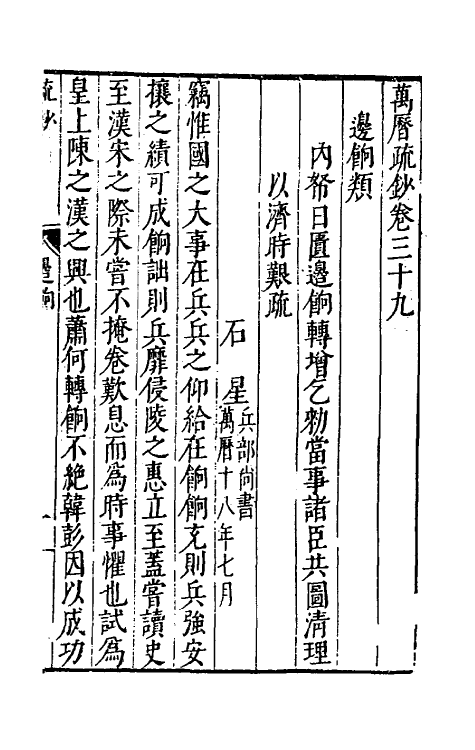 萬曆疏鈔卷三十九
邊餉類
內帑日匱邊餉轉增乞勑當事諸臣共圖清理
以濟時艱疏
石星兵部尚書萬曆十八年七月
竊惟國之大事在兵兵之仰給在餉餉充則兵強安
攘之績可成餉詘則兵靡侵陵之惠立至蓋嘗讀史
至漢宋之際未嘗不掩卷歎息而為時事懼也試為
皇上陳之漢之興也蕭何轉餉不絕韓彭因以成功
疏鈔
邊餉
一